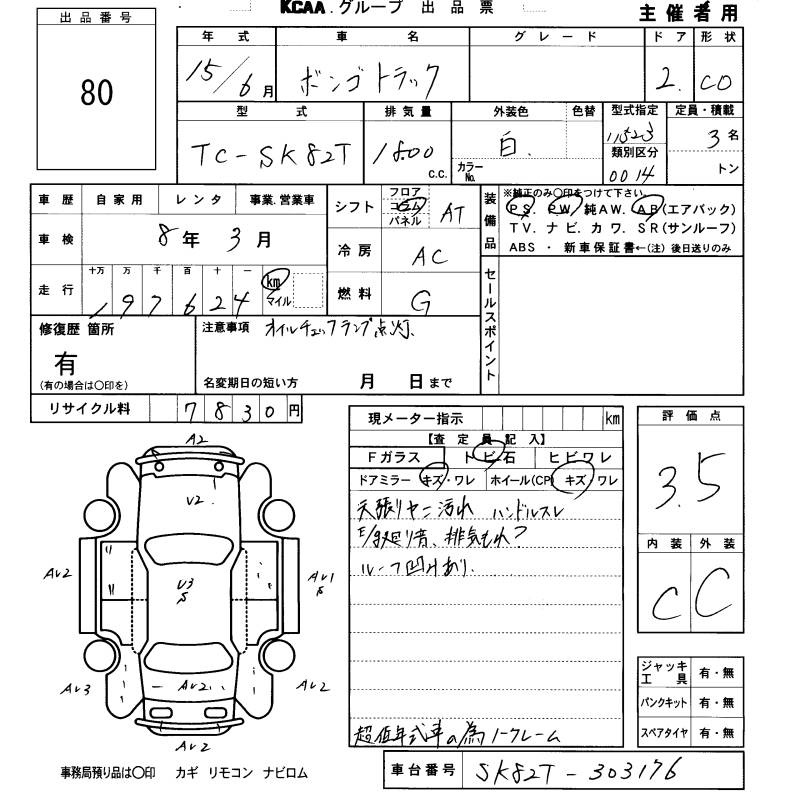 KCAA.グループ 出品票
主催者用
出品番号
80
年式 車名 グレード ドア 形状
15/6月 ボンゴトラック 2. CO
型式 排気量 外装色 色替 型式指定 定員・積載
TC-SK82T 1800 C.C. 白. カラーNo. 11523 3名
類別区分
0014 トン
車歴 自家用 レンタ 事業.営業車
車検 8年 3月
走行 十万 万 千 百 十 一
197624 km マイル
シフト フロア コラム パネル AT
冷房 AC
燃料 G
装備品 ※純正のみ〇印をつけて下さい。
PS. PW. 純AW. AB(エアバック)
TV. ナビ. カワ. SR(サンルーフ)
ABS ・ 新車保証書←(注) 後日送りのみ
セールスポイント
修復歴 箇所
有
(有の場合は〇印を)
注意事項 オイルチェックランプ点灯.
名変期日の短い方 月 日まで
リサイクル料 7830円
現メーター指示 km
【査定員記入】
Fガラス トビ石 ヒビワレ
ドアミラー キズ・ワレ ホイール(CP) キズ・ワレ
天張りヤニ汚れ ハンドルスレ
E/g廻り音、排気もれ?
ルーフ凹みあり.
超低年式車の為ノークレーム
評価点
3.5
内装 外装
C C
ジャッキ工具 有・無
パンクキット 有・無
スペアタイヤ 有・無
A2
U2
AU2
U3
S
AU1
S
AU3
AU2
AU2
AU2
事務局預り品は〇印 カギ リモコン ナビロム
車台番号 SK82T-303176